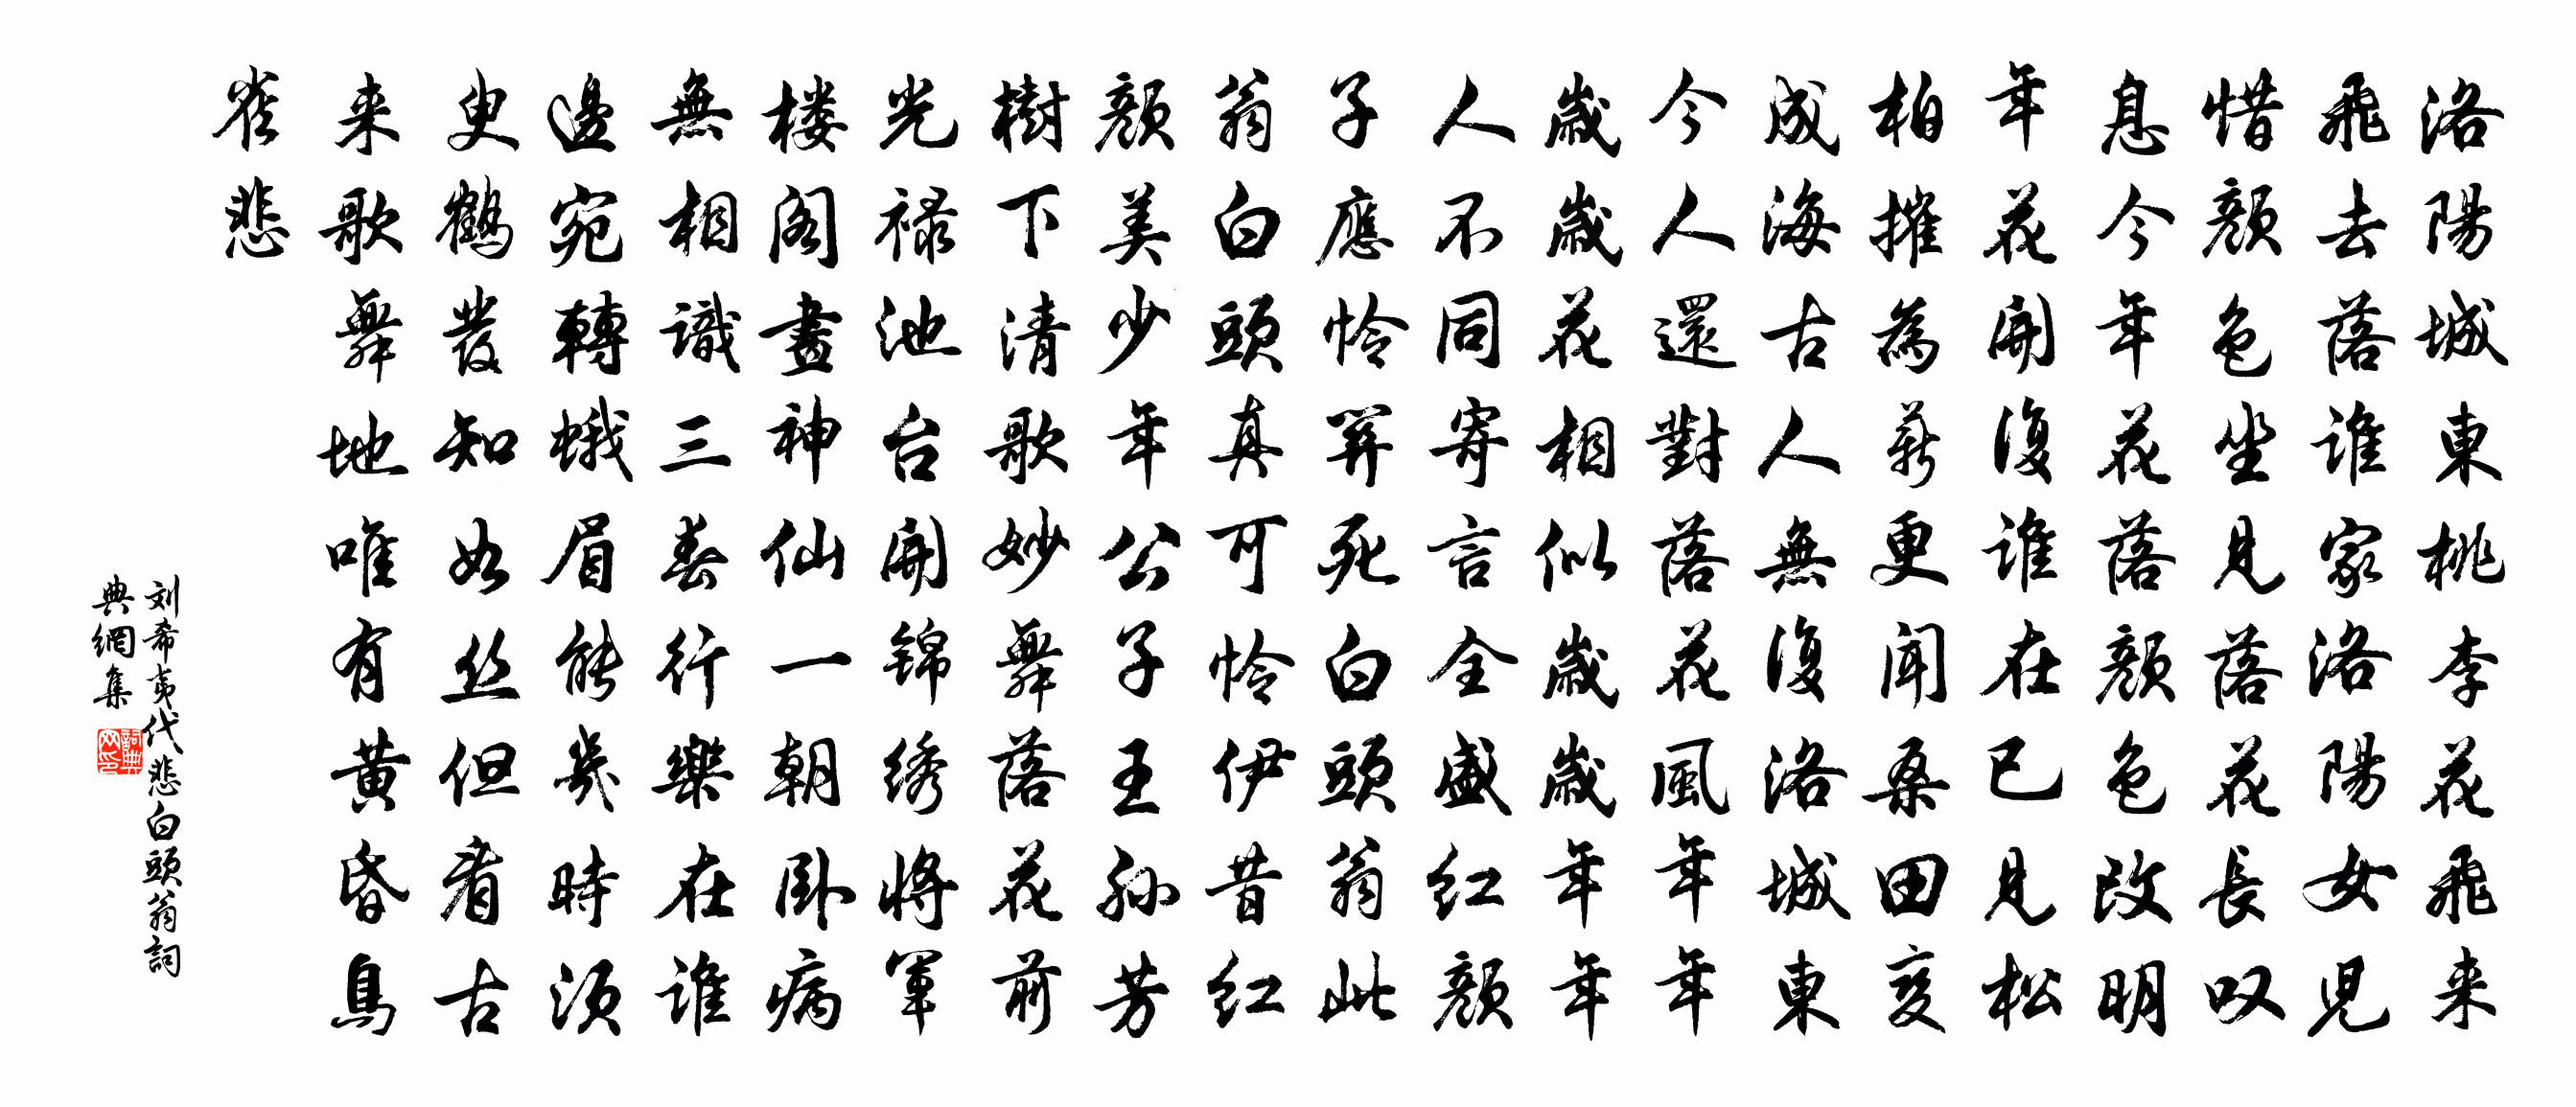 洛陽城東桃李花飛来
飛去落谁家洛陽女児
惜颜色坐見落花長叹
息今年花落颜色改明
年花開復谁在已見松
柏摧為薪更聞桑田変
成海古人無復洛城東
今人還對落花風年年
歲歲花相似歲歲年年
人不同寄言全盛红颜
子應怜半死白頭翁此
翁白頭真可怜伊昔红
颜美少年公子王孙芳
樹下清歌妙舞落花前
光禄池台開锦绣将軍
楼阁畫神仙一朝卧病
無相識三春行樂在谁
邊宛轉蛾眉能幾時须
臾鹤發知如丝但看古
来歌舞地唯有黄昏鳥
雀悲
刘希夷代悲白頭翁詞
典網集
詞典
网印